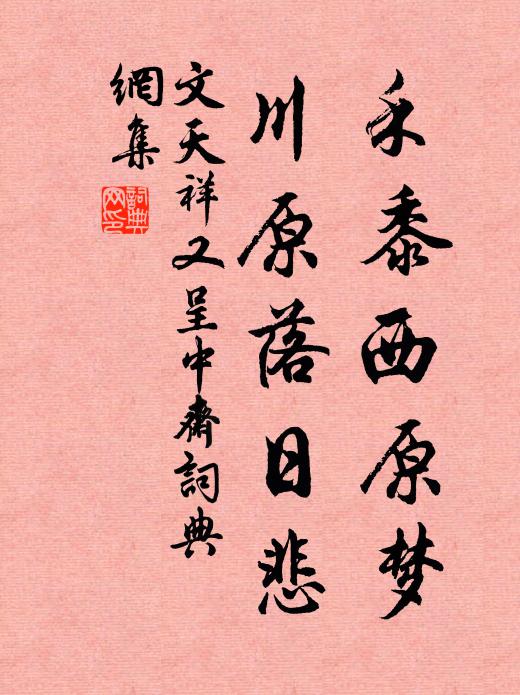 禾黍西原梦
川原落日悲
文天祥又呈中齋詞典
網集
詞典
网印